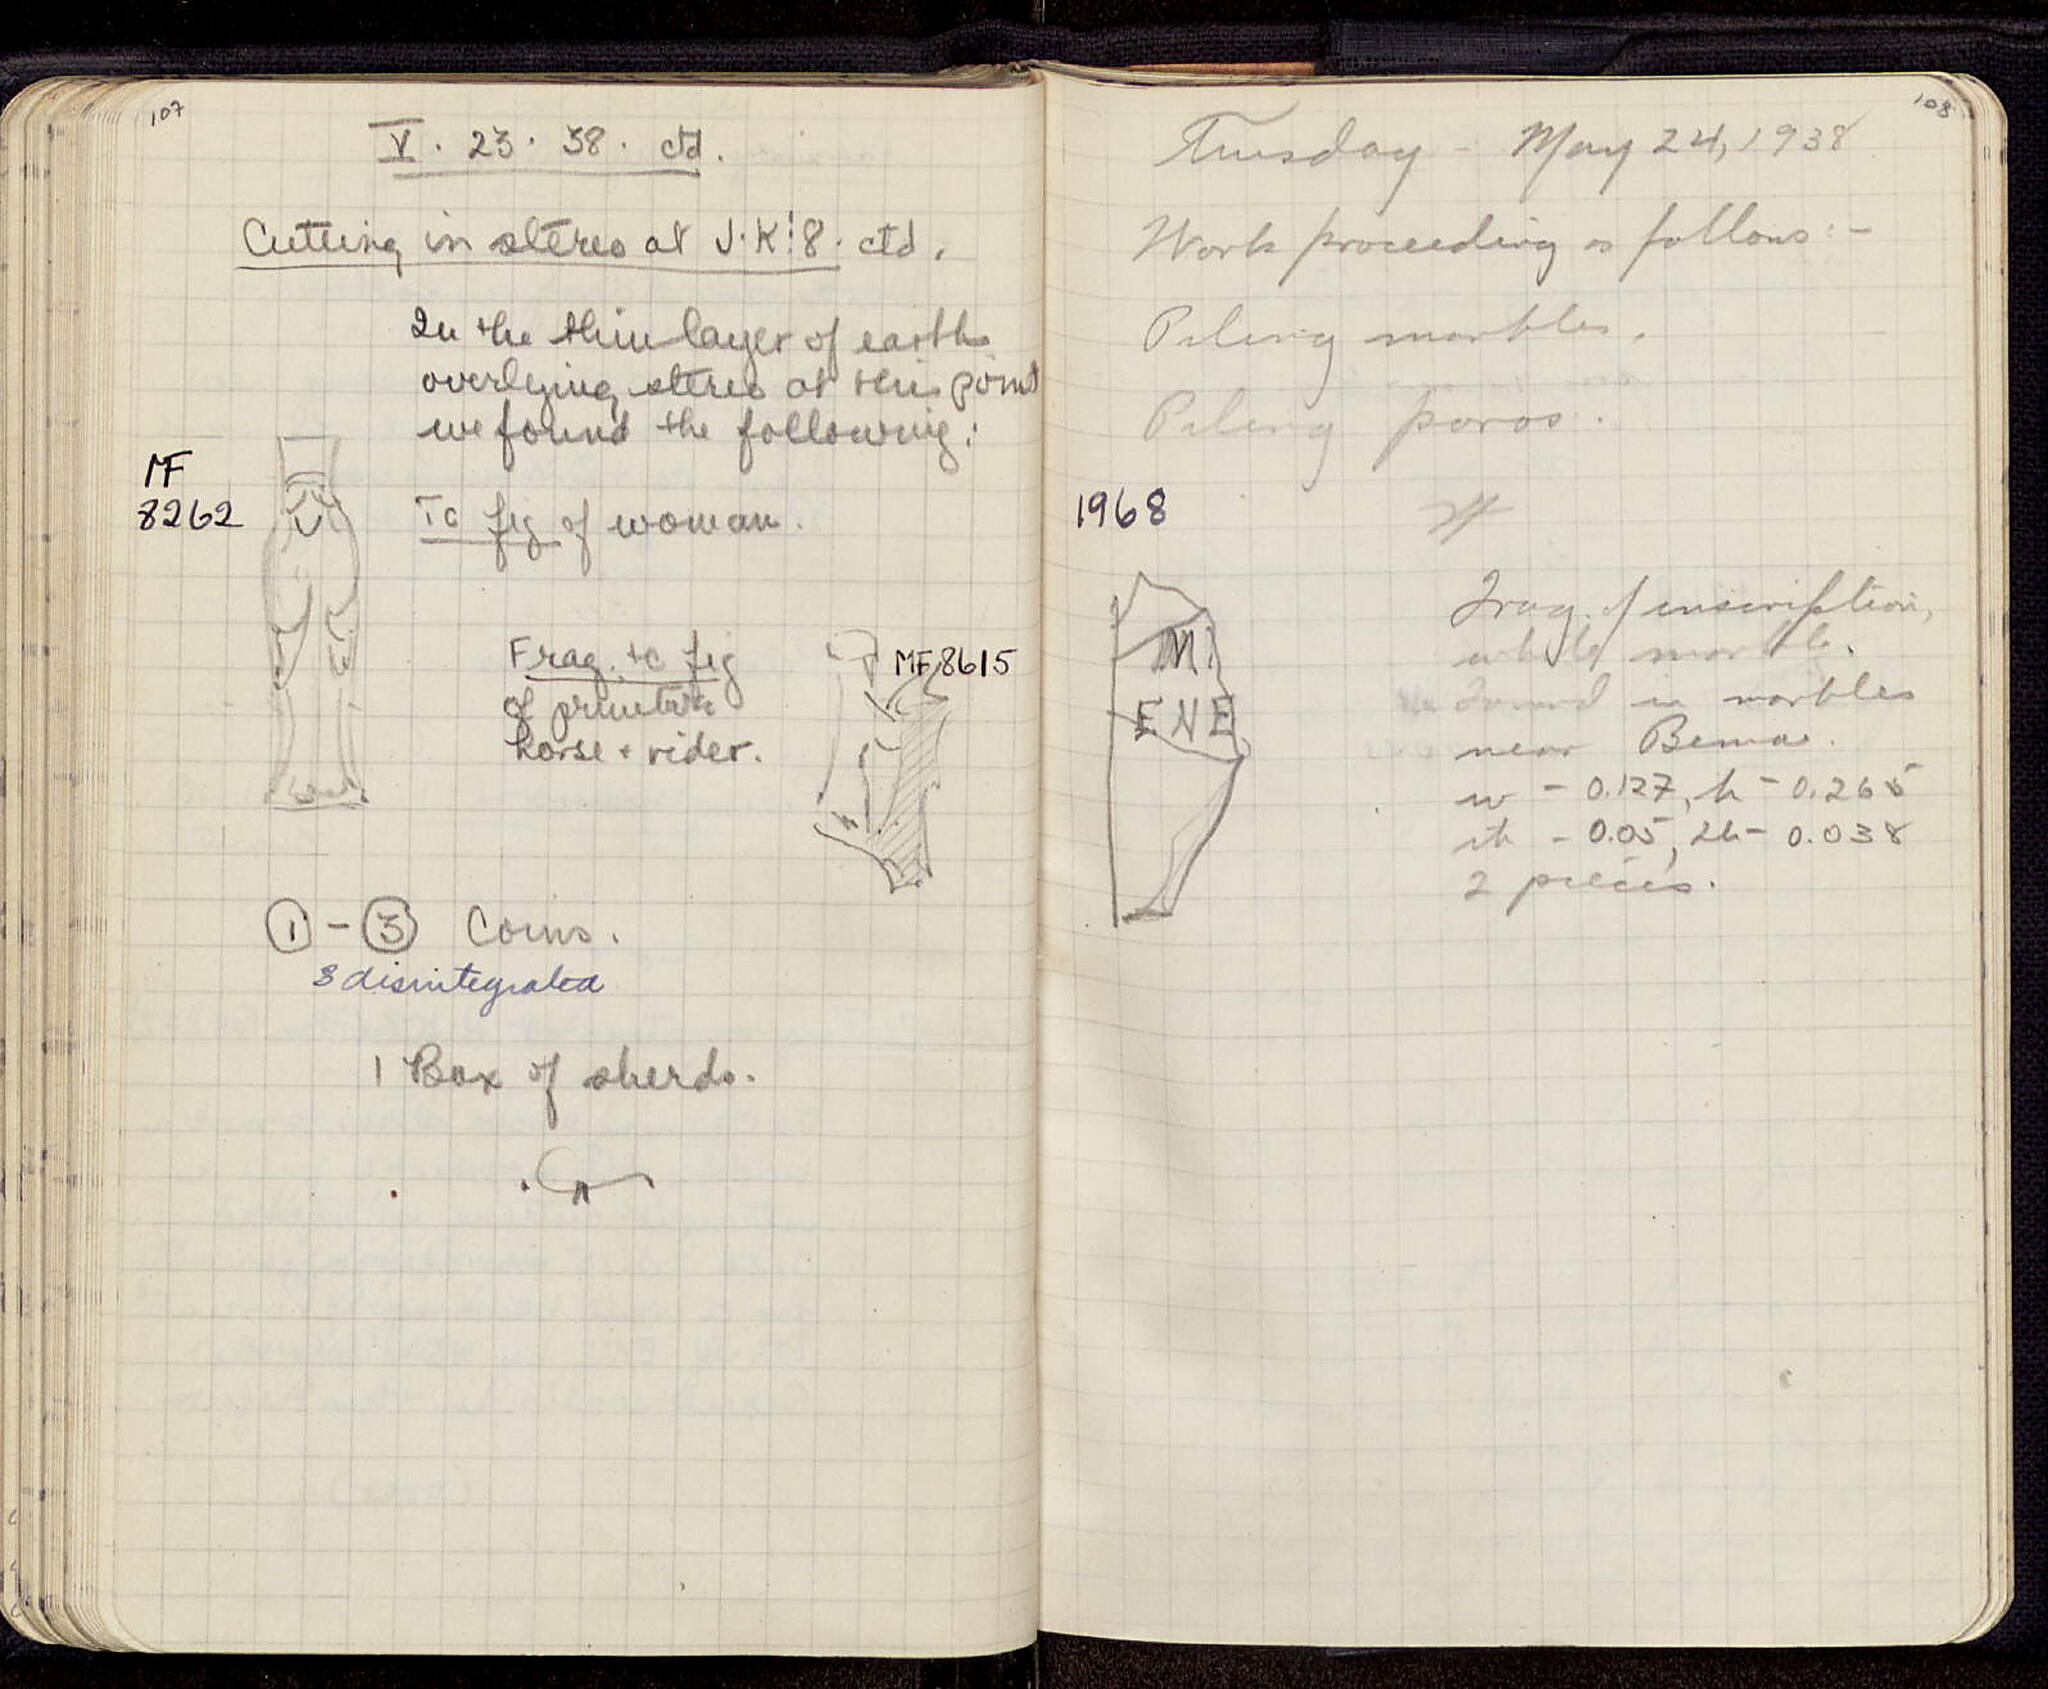 107
V. 23. 38. ctd.
Cutting in stereo at J-K:8. ctd.
In the thin layer of earth
overlying stereo at this point
we found the following:
MF
8262
Tc fig of woman.
Frag. tc fig
of primitive
horse + rider.
MF 8615
① - ③ Coins.
3 disintegrated
1 Box of sherds.
108
Tuesday - May 24, 1938
Work proceeding as follows:-
Piling marbles.
Piling poros.
1968
Frag. of inscription,
white marble.
Found in marbles
near Bema.
w - 0.127, h - 0.265
th - 0.05, Lh - 0.038
2 pieces.
MI
ENE